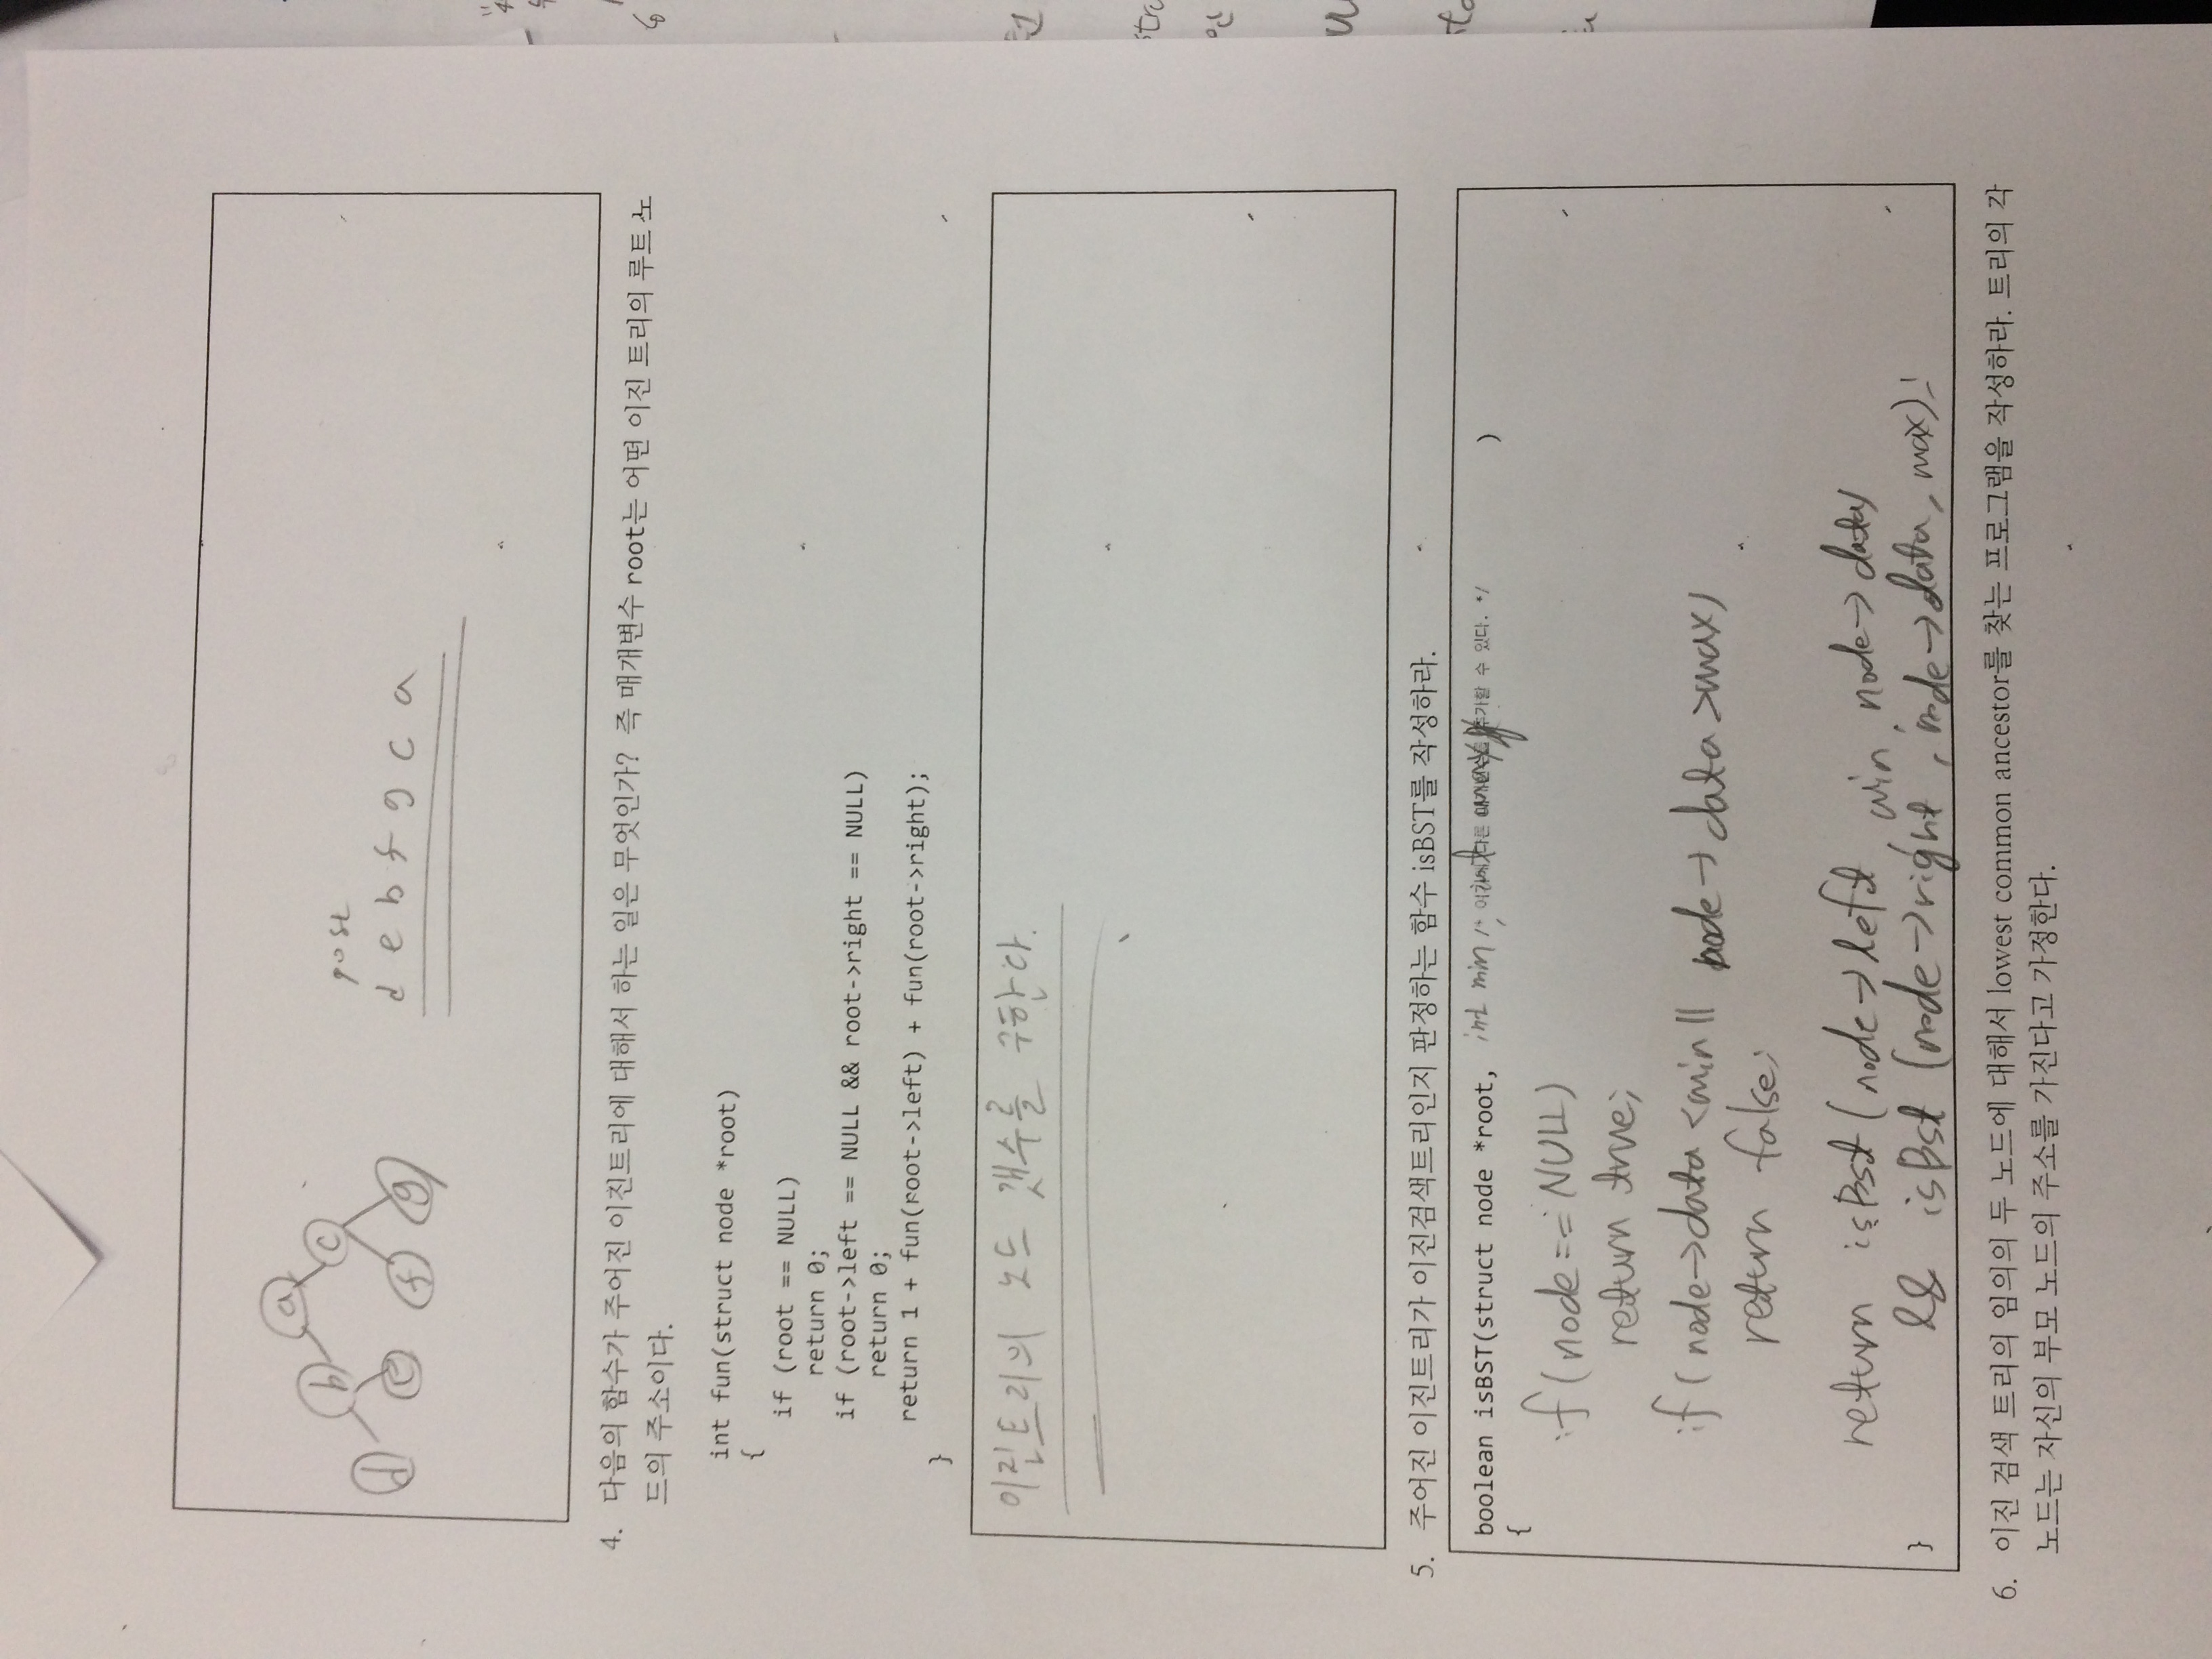 a
b c
d e f g
post
d e b f g c a
4. 다음의 함수가 주어진 이진트리에 대해서 하는 일은 무엇인가? 즉 매개변수 root는 어떤 이진 트리의 루트 노
드의 주소이다.
int fun(struct node *root)
{
if (root == NULL)
return 0;
if (root->left == NULL && root->right == NULL)
return 0;
return 1 + fun(root->left) + fun(root->right);
}
이진트리의 노드 갯수를 구한다.
5. 주어진 이진트리가 이진검색트리인지 판정하는 함수 isBST를 작성하라.
boolean isBST(struct node *root, int min, /* 여기에 다른 매개변수를 추가할 수 있다. */ )
{
if(node==NULL)
return true;
if(node->data <min || node->data >max)
return false;
return isBst(node->left, min, node->data)
&& isBst (node->right, node->data, max);
}
6. 이진 검색 트리의 임의의 두 노드에 대해서 lowest common ancestor를 찾는 프로그램을 작성하라. 트리의 각
노드는 자신의 부모 노드의 주소를 가진다고 가정한다.
6